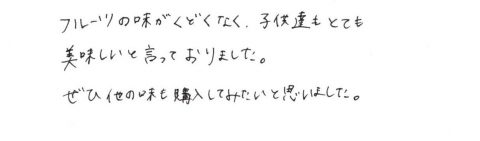 フルーツの味がくどくなく、子供達もとても
美味しいと言っておりました。
ぜひ他の味も購入してみたいと思いました。